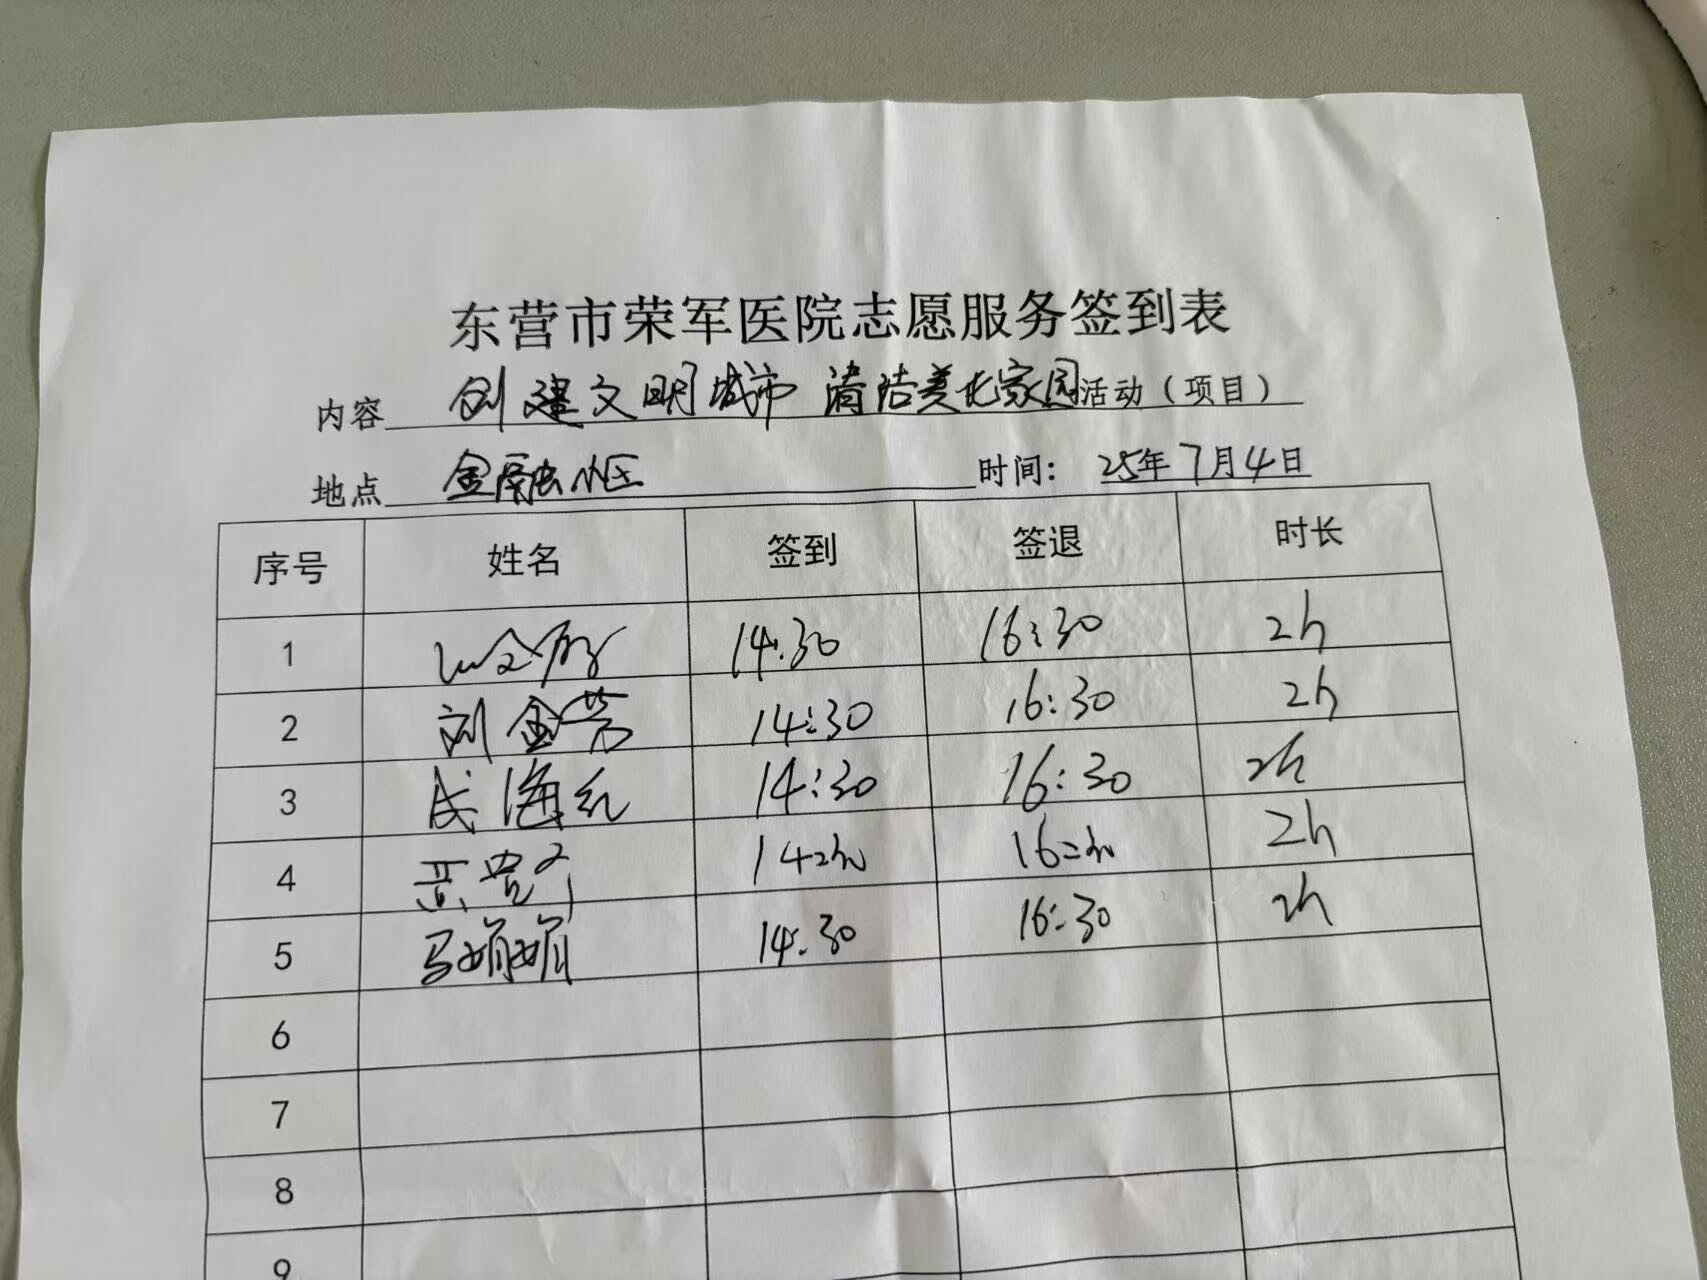 东营市荣军医院志愿服务签到表
内容 创建文明城市 清洁美化家园活动（项目）
地点 金融小区 时间： 25年7月4日
序号 姓名 签到 签退 时长
1 14:30 16:30 2h
2 刘金芳 14:30 16:30 2h
3 成海红 14:30 16:30 2h
4 14:30 16:30 2h
5 马娟娟 14:30 16:30 2h
6
7
8
9